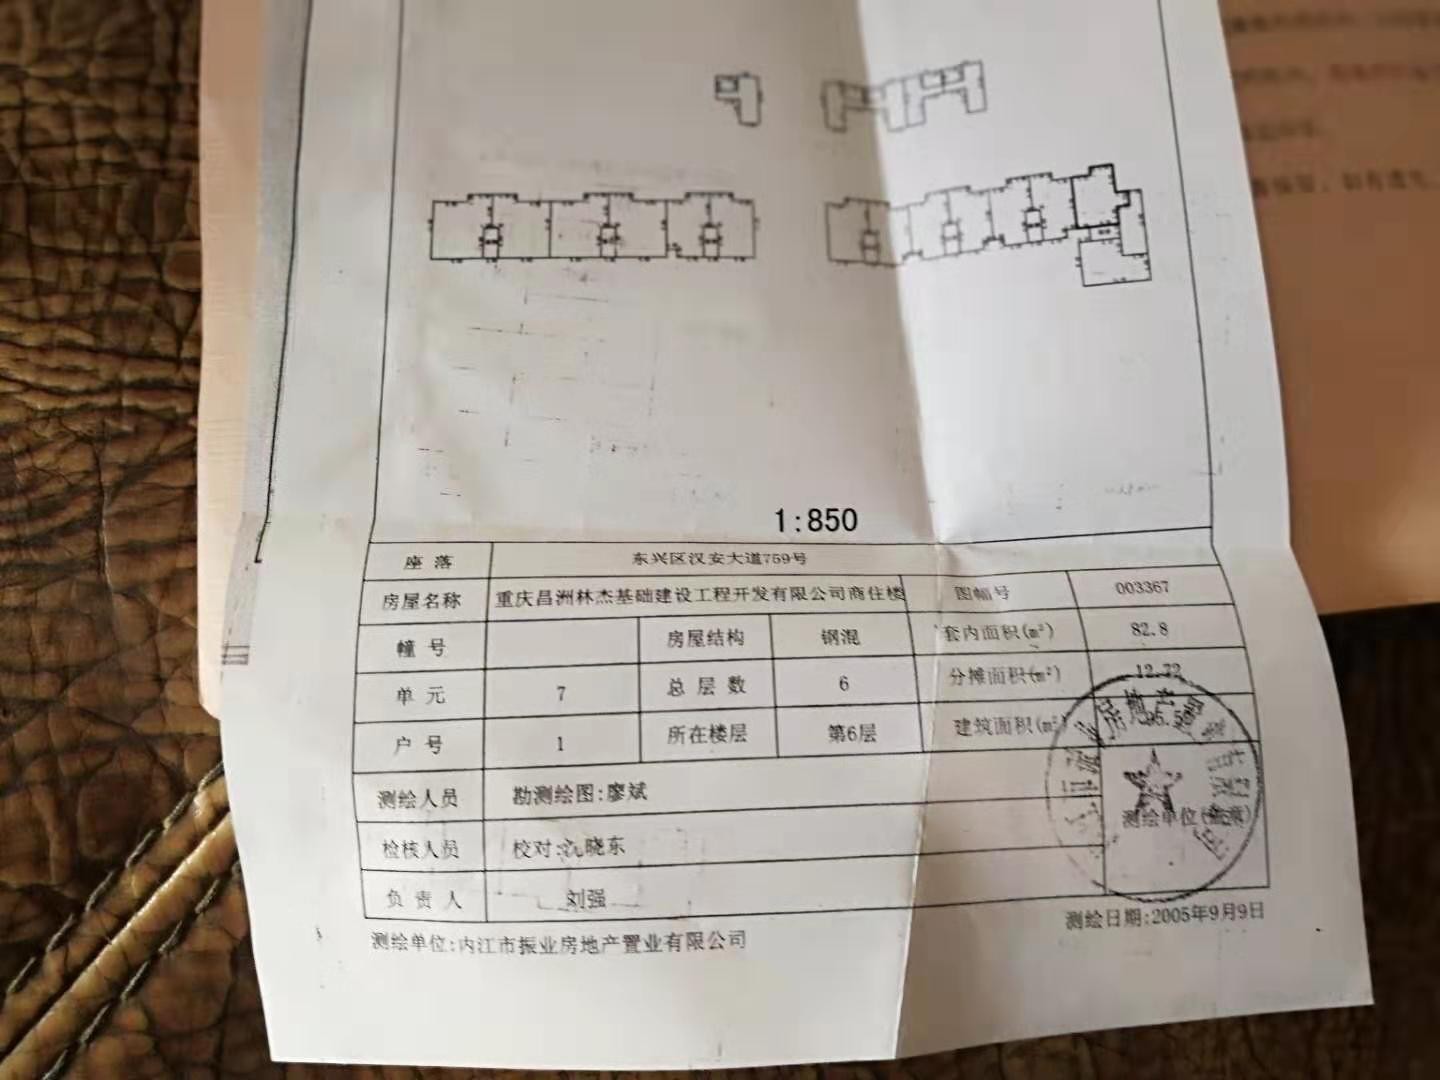 1:850
座落 东兴区汉安大道759号
房屋名称 重庆昌洲林杰基础建设工程开发有限公司商住楼 图幅号 003367
幢号 房屋结构 钢混 套内面积(m²) 82.8
单元 7 总层数 6 分摊面积(m²) 12.72
户号 1 所在楼层 第6层 建筑面积(m²)
测绘人员 勘测绘图:廖斌
测绘单位
检核人员 校对: 晓东
负责人 刘强
测绘日期:2005年9月9日
测绘单位:内江市振业房地产置业有限公司